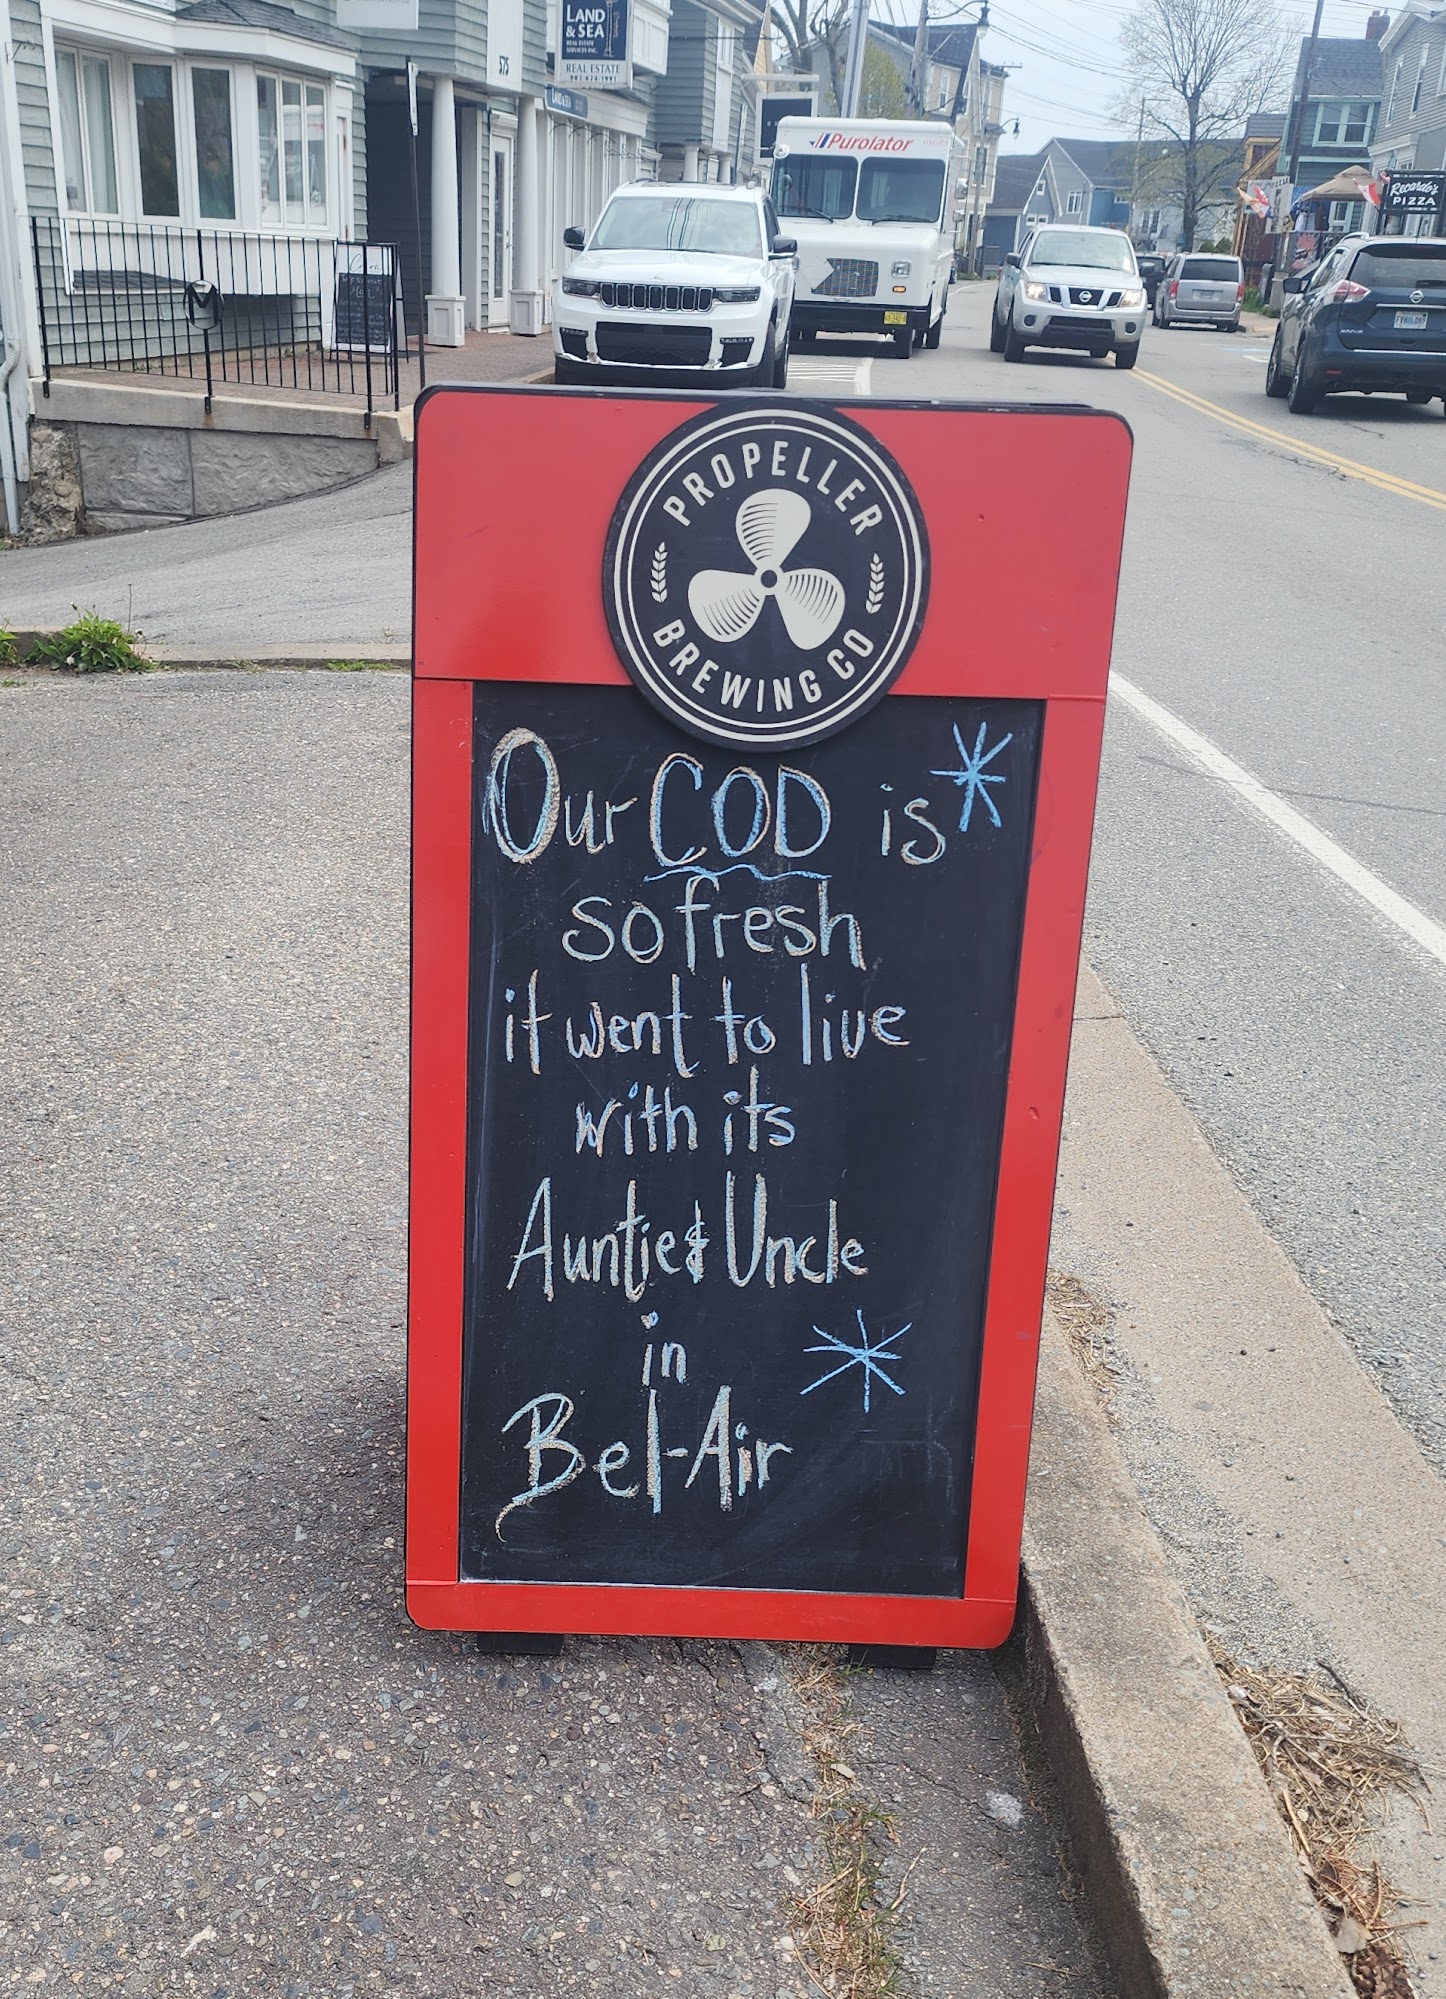 LAND
& SEA
REAL ESTATE
SERVICES INC.
REAL ESTATE
902-624-1991
575
LAND & SEA
Purolator
Recardo's
PIZZA
PROPELLER
BREWING CO
Our COD is
so fresh
it went to live
with its
Auntie & Uncle
in
Bel-Air